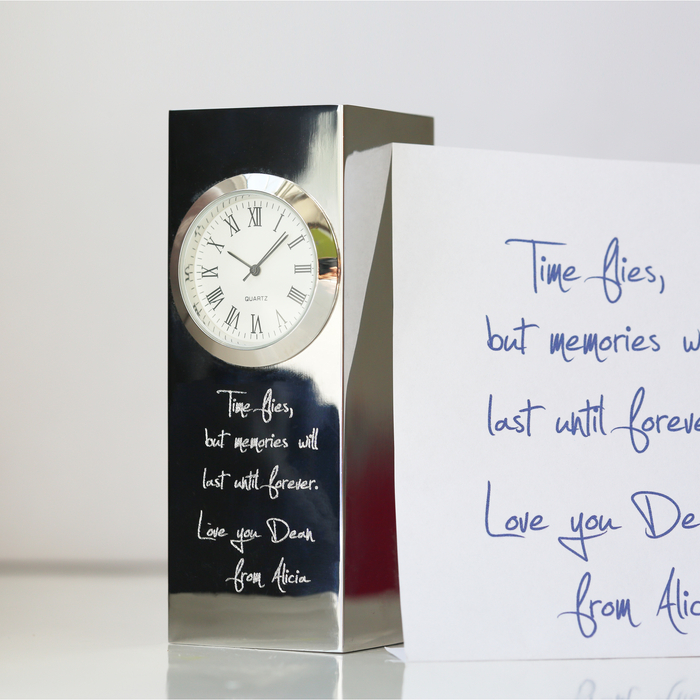 XII
I
II
III
IIII
V
VI
VII
VIII
IX
X
XI
QUARTZ
Time flies,
but memories will
last until forever.
Love you Dean
from Alicia
Time flies,
but memories w
last until foreve
Love you Dea
from Alic